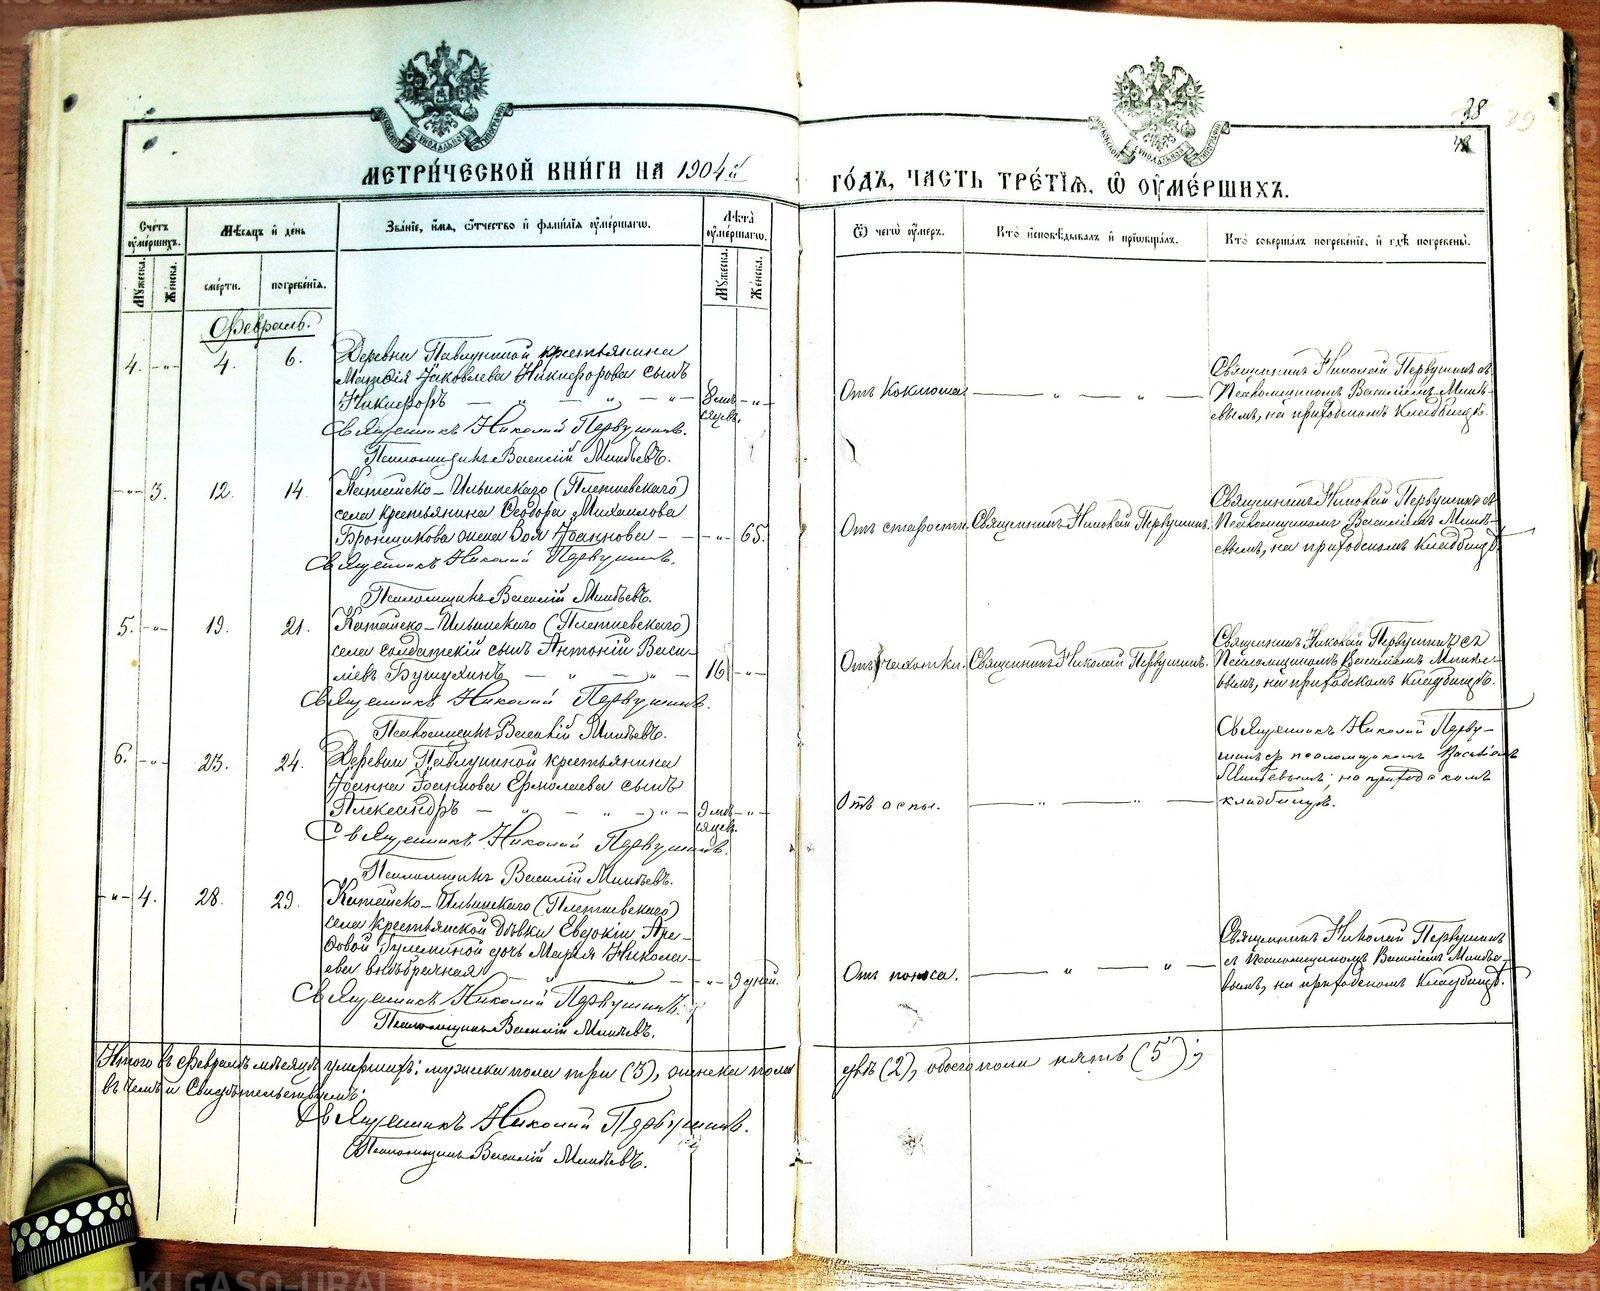 МОСКОВСКОЙ СѴНОДАЛЬНОЙ ТИПОГРАФІИ
МОСКОВСКОЙ СѴНОДАЛЬНОЙ ТИПОГРАФІИ
38
39
МЕТРИ́ЧЕСКОЙ КНИ́ГИ НА 1904й
ГО́ДЪ, ЧАСТЬ ТРЕ́ТІѦ, Ѿ ОУМЕ́РШИХЪ.
Счетъ оумершихъ.
Мужеска.
Женска.
Мѣсяцъ и день
смерти.
погребенія.
Званіе, имя, отчество и фамилія оумершагѡ.
Лѣта оумершагѡ.
Мужеска.
Женска.
Ѿ чегѡ оумеръ.
Кто исповѣдывалъ и пріобщалъ.
Кто совершалъ погребеніе, и гдѣ погребены.
Февраль.
4. - „ - 4. 6.
Деревни Павлушиной крестьянина
Матѳія Іаковлева Никифорова сынъ
Никифоръ — „ — „ — „ —
8 мѣ-
сяцевъ. - „ -
Священникъ Николай Первушинъ.
Псаломщикъ Василій Минѣевъ.
Отъ коклюша. — „ „ —
Священникъ Николай Первушинъ съ
Псаломщикомъ Василіемъ Минѣ-
евымъ, на приходскомъ кладбищѣ.
- „ - 3. 12. 14.
Катайско-Ильинскаго (Плетневскаго)
села крестьянина Ѳеодора Михаилова
Бронникова жена Зоя Іоаннова — - „ - 65.
Священникъ Николай Первушинъ.
Псаломщикъ Василій Минѣевъ.
Отъ старости. Священникъ Николай Первушинъ.
Священникъ Николай Первушинъ съ
Псаломщикомъ Василіемъ Минѣ-
евымъ, на приходскомъ кладбищѣ.
5. - „ - 19. 21.
Катайско-Ильинскаго (Плетневскаго)
села солдатскій сынъ Антоній Васи-
ліевъ — „ — „ — 16 - „ -
Священникъ Николай Первушинъ.
Псаломщикъ Василій Минѣевъ.
Отъ чахотки. Священникъ Николай Первушинъ.
Священникъ Николай Первушинъ съ
Псаломщикомъ Василіемъ Минѣе-
вымъ, на приходскомъ кладбищѣ.
6. - „ - 23. 24.
Деревни Павлушиной крестьянина
Іоанна Іоаннова Ермолаева сынъ
Александръ — „ — „ — „ —
9 мѣ-
сяцев. - „ -
Священникъ Николай Первушинъ.
Псаломщикъ Василій Минѣевъ.
Отъ оспы. — „ „ —
Священникъ Николай Перву-
шинъ съ псаломщикомъ Василіемъ
Минѣевымъ, на приходскомъ
кладбищѣ.
- „ - 4. 28. 29.
Катайско-Ильинскаго (Плетневскаго)
села крестьянской дѣвки Евдокіи Аре-
ѳовой дочь Марія Никола-
ева внѣбрачная — „ — - „ - 9 дней.
Священникъ Николай Первушинъ.
Псаломщикъ Василій Минѣевъ.
Отъ поноса. — „ „ —
Священникъ Николай Первушинъ
съ Псаломщикомъ Василіемъ Минѣе-
вымъ, на приходскомъ кладбищѣ.
Итого въ Февралѣ мѣсяцѣ умершихъ: мужска пола три (3), женска пола двѣ (2), обоего пола пять (5);
въ чемъ и свидѣтельствуемъ:
Священникъ Николай Первушинъ.
Псаломщикъ Василій Минѣевъ.
METRIKI.GASO-URAL.RU